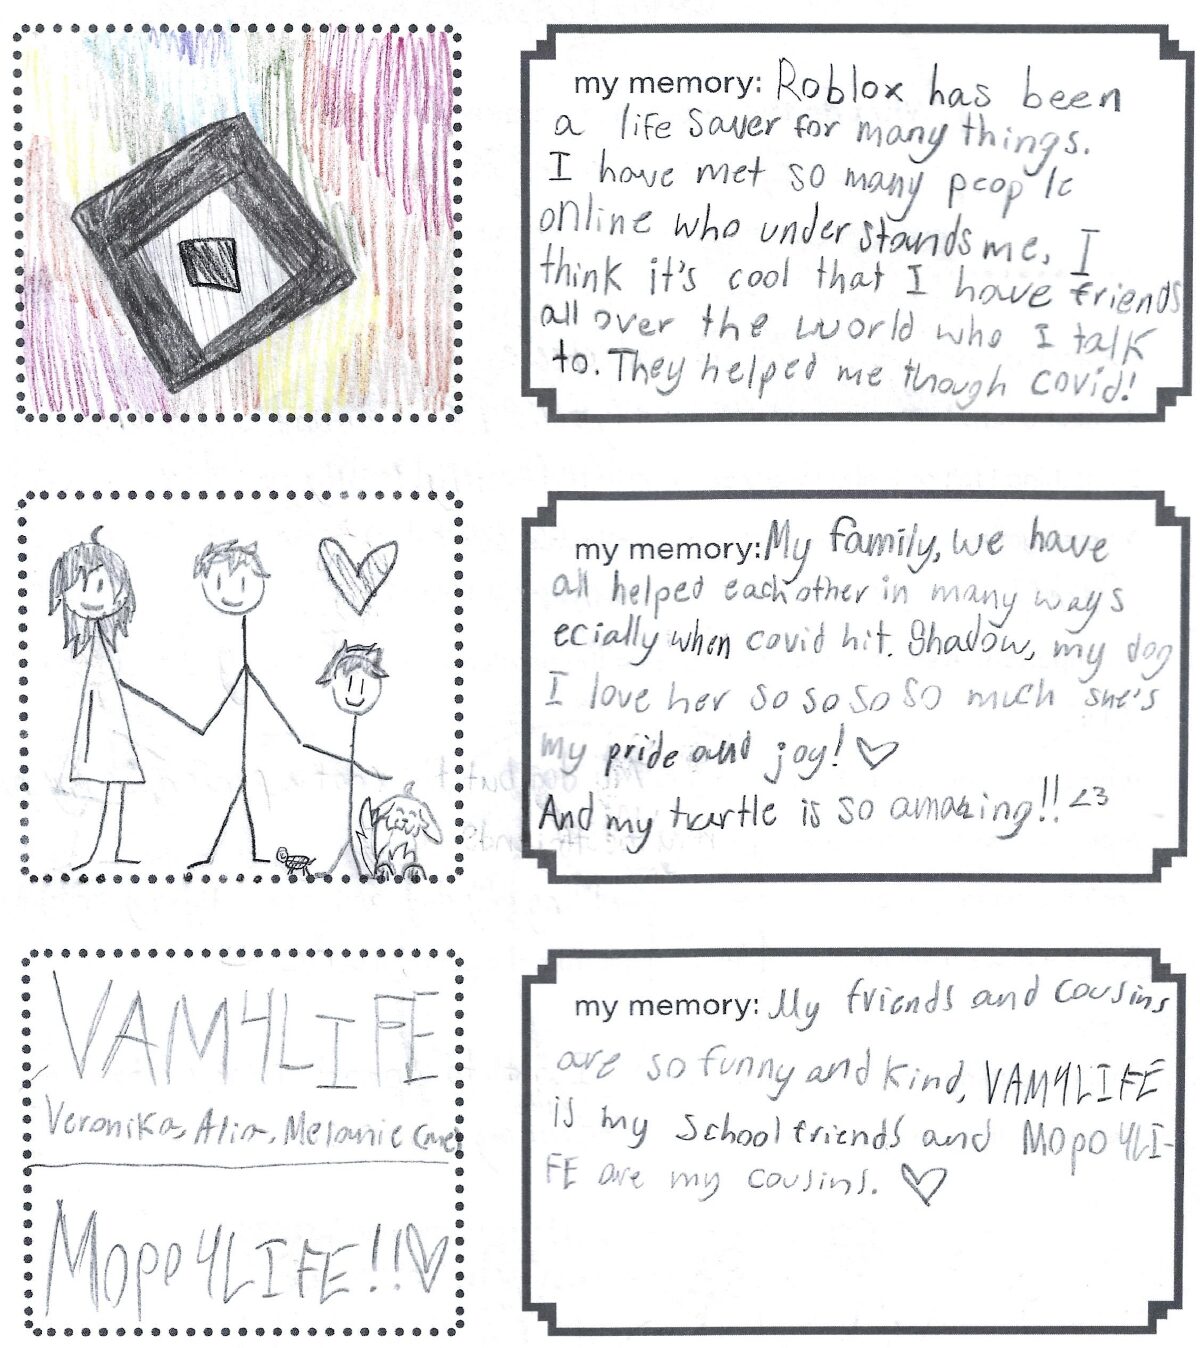 my memory: Roblox has been
a life saver for many things.
I have met so many people
online who understands me. I
think it's cool that I have friends
all over the world who I talk
to. They helped me though covid!
my memory: My family, we have
all helped each other in many ways
ecially when covid hit. Shadow, my dog
I love her so so so so much she's
my pride and joy! ♡
And my turtle is so amazing!! <3
VAM4LIFE
Veronika, Alia, Melanie (me)
Mopo4LIFE!!♡
my memory: My friends and cousins
are so funny and kind, VAM4LIFE
is my school friends and Mopo4LI-
FE are my cousins. ♡